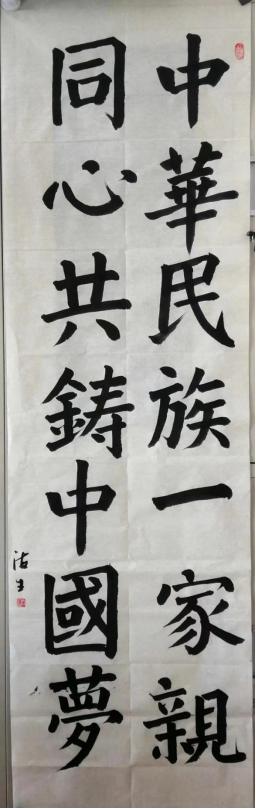 中華民族一家親
同心共鋳中國夢